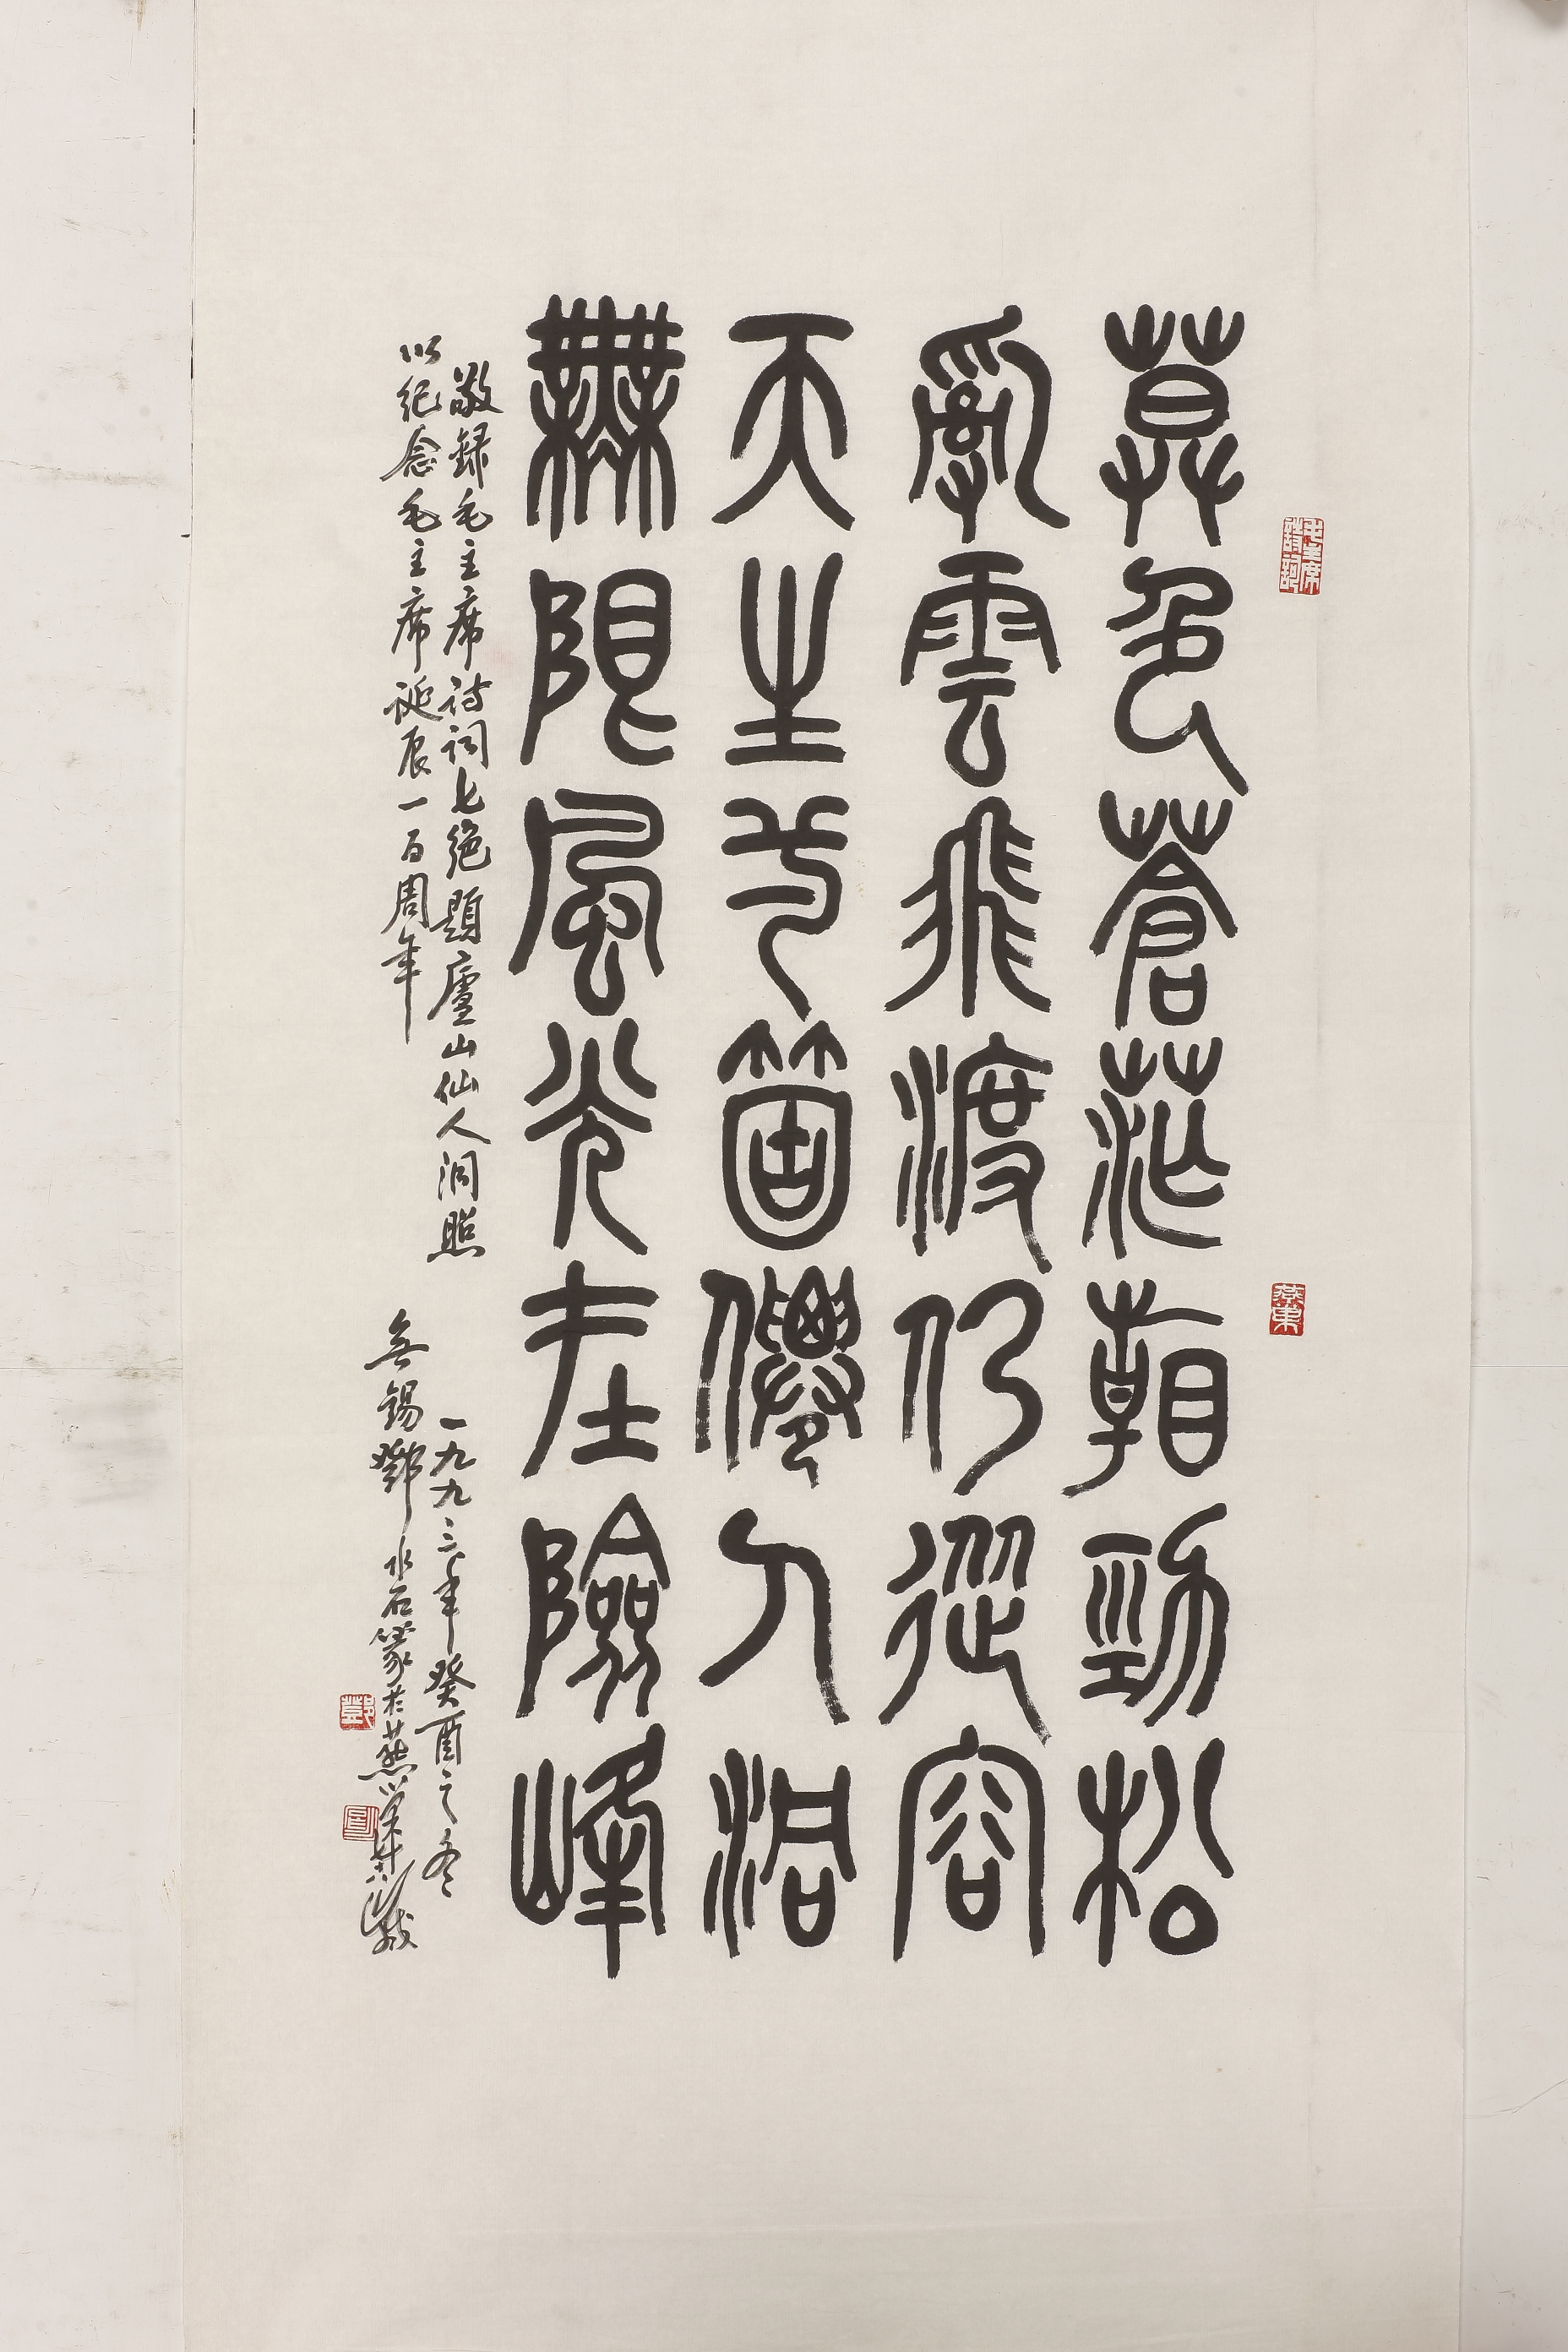 莫色蒼茫看勁松
亂雲飛渡仍從容
天生一個僊人洞
無限風光在險峰
敬録毛主席诗词七绝題廬山仙人洞照
以纪念毛主席诞辰一百周年
一九九三年癸酉之冬
無錫鄧水石篆於燕
毛主席詩詞
燕東
鄧